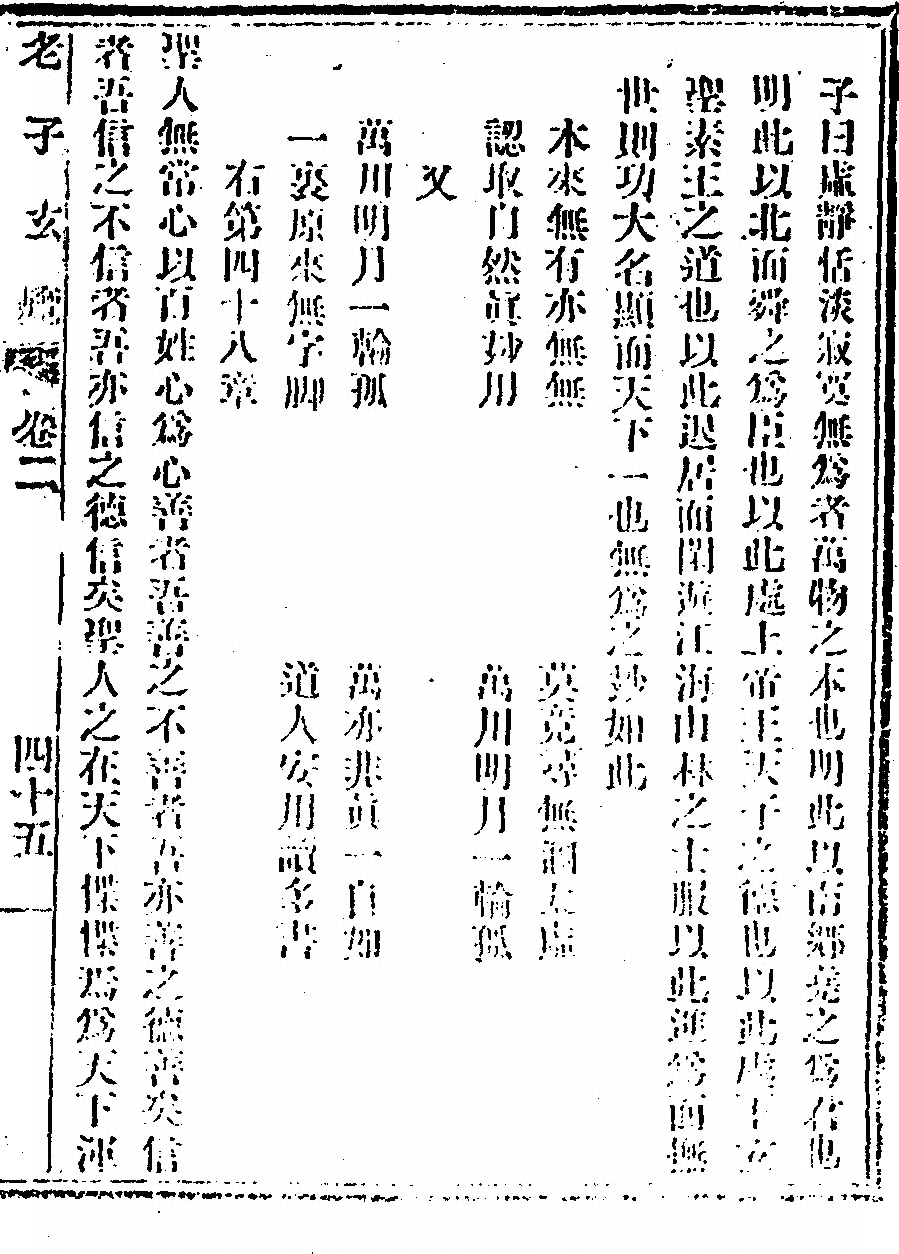 子曰虛靜恬淡寂寞無爲者萬物之本也明此以南鄉堯之爲君也
明此以北面舜之爲臣也以此處上帝王天子之德也以此處下玄
聖素王之道也以此退居而閑游江海山林之士服以此進爲而撫
世則功大名顯而天下一也無爲之妙如此
本來無有亦無無　莫竟尋無調太虛
認取自然眞妙用　萬川明月一輪孤
又
萬川明月一輪孤　萬亦非眞一自如
一裏原來無字脚　道人安用讀多書
右第四十八章
聖人無常心以百姓心爲心善者吾善之不善者吾亦善之德善矣信
者吾信之不信者吾亦信之德信矣聖人之在天下惵惵焉爲天下渾
老子玄 卷二 四十五